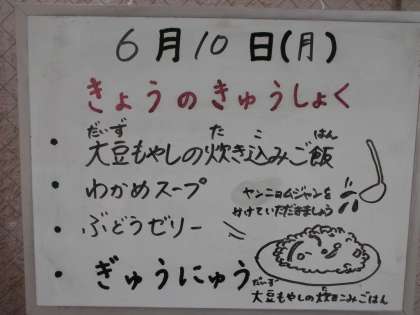 6月10日(月)
きょうのきゅうしょく
だいず た こ はん
・大豆もやしの炊き込みご飯
・わかめスープ
ヤンニョムジャンを
かけていただきましょう
・ぶどうゼリー
・ぎゅうにゅう
だいず た
大豆もやしの炊きこみごはん